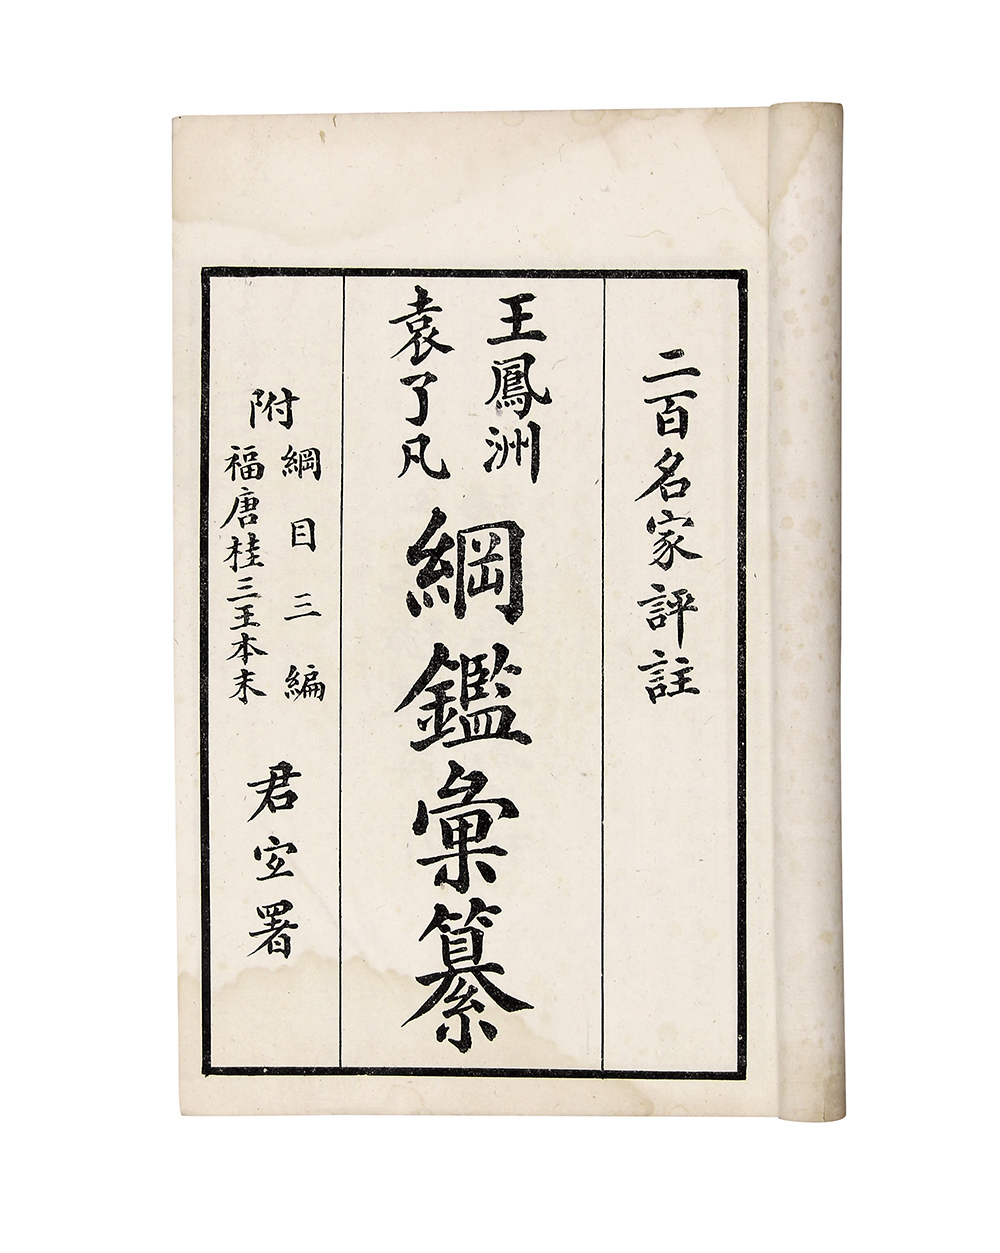 二百名家評註
王鳳洲
袁了凡
綱鑑彙纂
附
綱目三編
福唐桂三王本末
君宜署